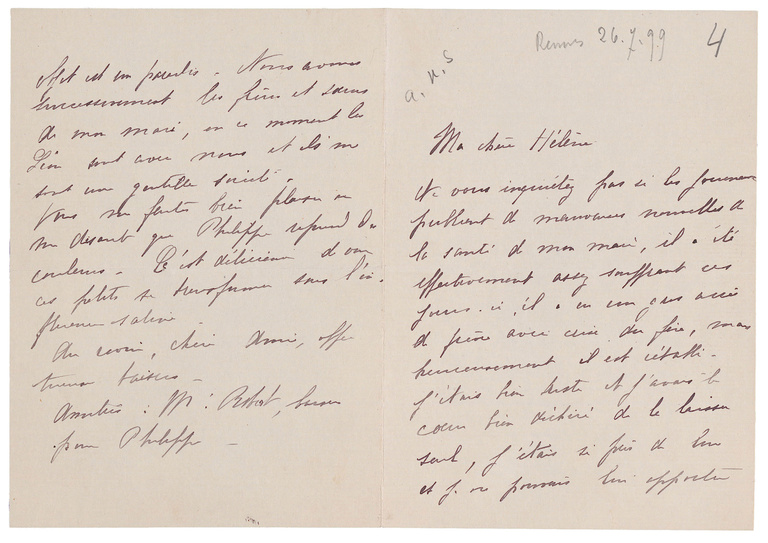 Rennes 26.7.99
4
a. n. s
Ma chère Hélène
Ne vous inquiétez pas si les journaux
publient de mauvaises nouvelles de
la santé de mon mari, il a été
effectivement assez souffrant ces
jours-ci, il a eu un gros accès
de fièvre avec crise du foie, mais
heureusement il est rétabli.
J'étais bien triste et j'avais le
cœur bien déchiré de le laisser
seul, j'étais si près de lui
et je ne pouvais lui apporter
est un paradis. Nous avons
successivement les frères et sœurs
de mon mari, en ce moment les
Léon sont avec nous et ils me
sont une gentille société.
Vous me faites bien plaisir en
me disant que Philippe reprend des
couleurs. C'est délicieux de voir
ces petits se transformer sous l'in-
fluence saline
Au revoir, chère amie, affec
tueux baisers
Amitiés à Mr Robert, baisers
pour Philippe